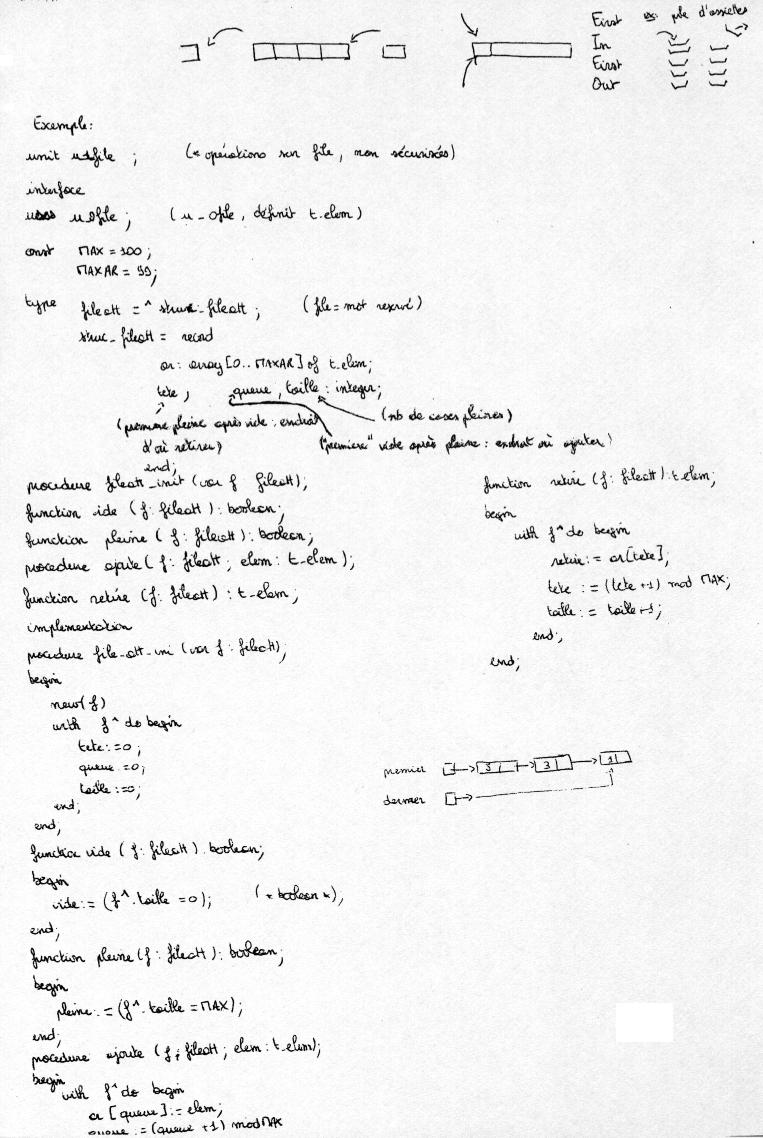 First ex: pile d'assiettes
In
First
Out
Exemple:
unit udfile ; (* opérations sur file, non sécurisées)
interface
uses u_ofile ; (u_ofile, définit t_elem)
const MAX = 100 ;
MAXAR = 99;
type fileatt = ^ struc_fileatt ; (file = mot reservé)
struc_fileatt = record
ar : array [0.. MAXAR] of t_elem;
tete , queue , taille : integer;
(première pleine après vide : endroit d'où retirer)
(nb de cases pleines)
("première" vide après pleine : endroit où ajouter)
end;
procedure fileatt_init (var f fileatt);
function vide (f : fileatt) : boolean;
function pleine (f : fileatt) : boolean;
procedure ajoute (f : fileatt ; elem : t_elem);
function retire (f : fileatt) : t_elem;
implementation
procedure file_att_ini (var f : fileatt);
begin
new(f)
with f^ do begin
tete :=0 ;
queue :=0;
taille :=0;
end;
end;
function vide (f : fileatt) : boolean;
begin
vide := (f^.taille =0); (* boolean *);
end;
function pleine (f : fileatt) : boolean;
begin
pleine := (f^.taille = MAX);
end;
procedure ajoute (f ; fileatt ; elem : t_elem);
begin
with f^ do begin
ar [queue] := elem;
queue := (queue +1) mod MAX
function retire (f : fileatt) : t_elem;
begin
with f^ do begin
retire := ar[tete];
tete := (tete +1) mod MAX;
taille := taille -1;
end;
end;
premier 5 3 1
dernier